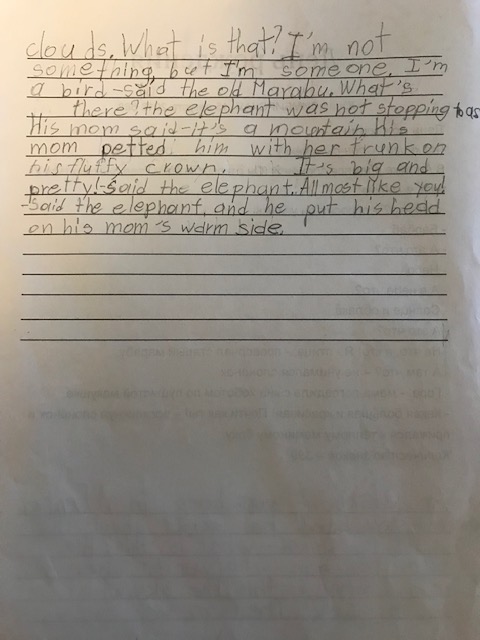 clouds. What is that? I'm not
something, but I'm someone. I'm
a bird -said the old Marabu. What's
there? the elephant was not stopping to as
His mom said-it's a mountain. His
mom petted him with her trunk on
his fluffy crown. It's big and
pretty!-Said the elephant. All most like you!
-Said the elephant, and he put his head
on his mom's warm side.